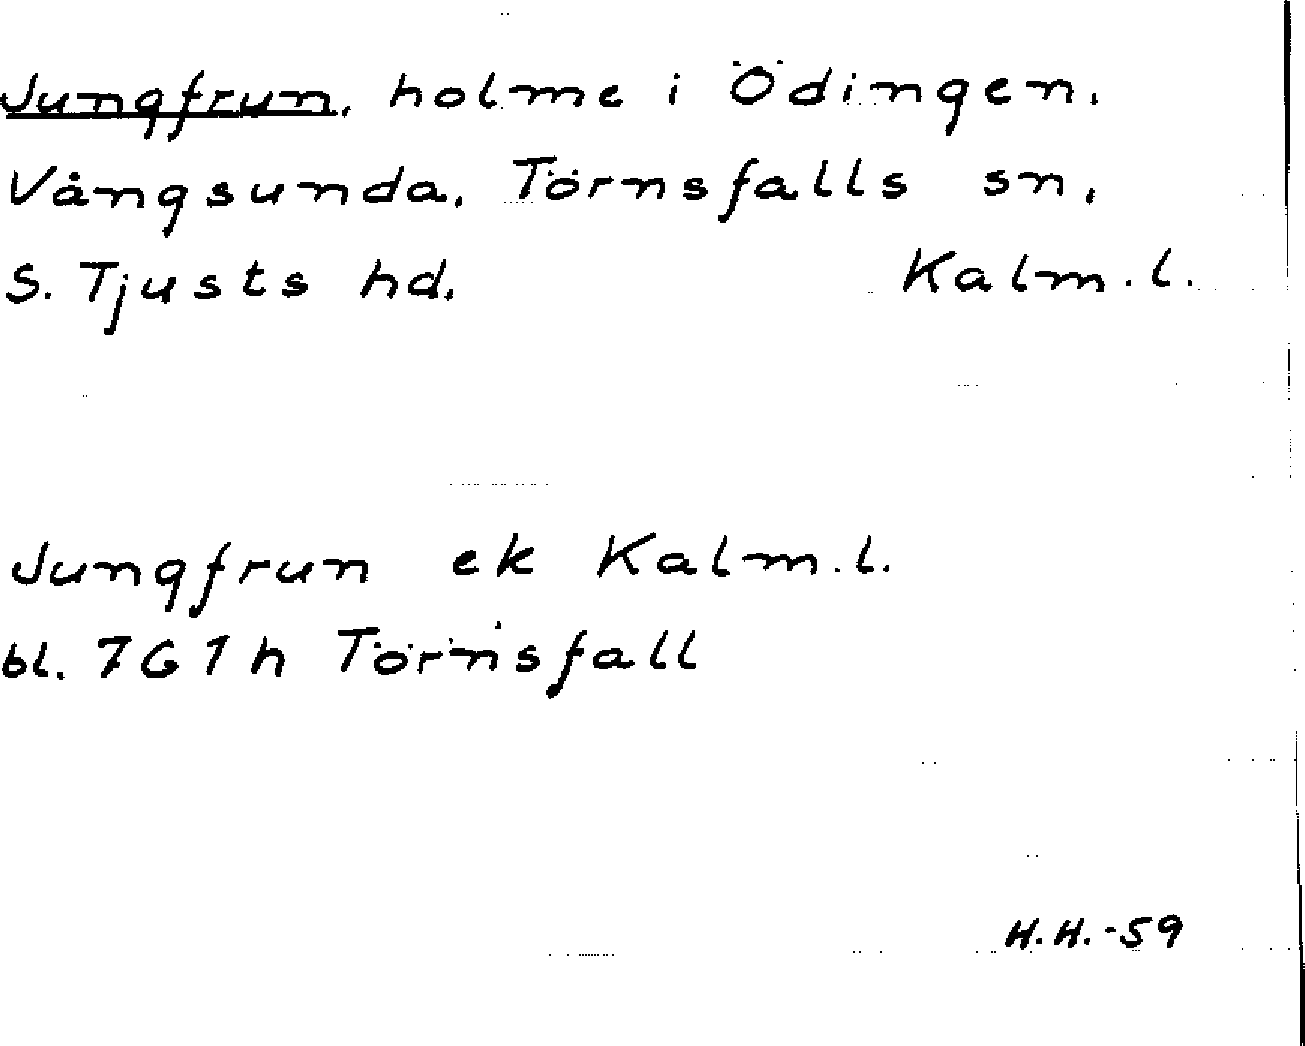 Jungfrun, holme i Ödingen,
Vångsunda, Törnsfalls sn,
S. Tjusts hd. Kalm.l.
Jungfrun ek Kalm.l.
bl. 7G1h Törnsfall
H.H.-59